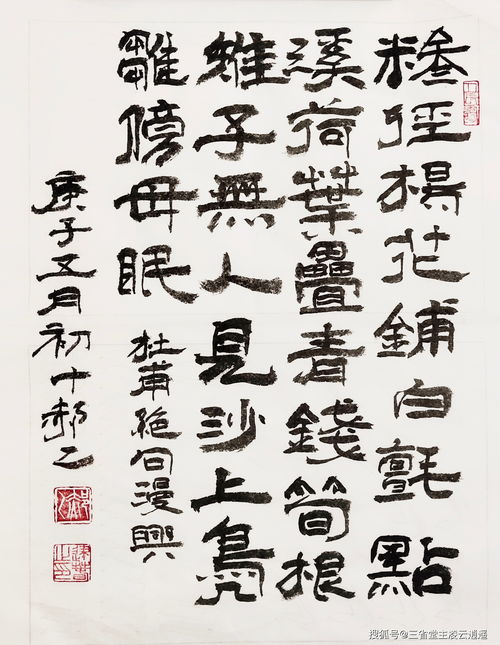 糝徑楊花鋪白氈點
溪荷葉疊青錢筍根
雉子無人見沙上鳧
雛傍母眠
杜甫絕句漫興
庚子五月初十郝
搜狐号@三省堂主凌云逍遥